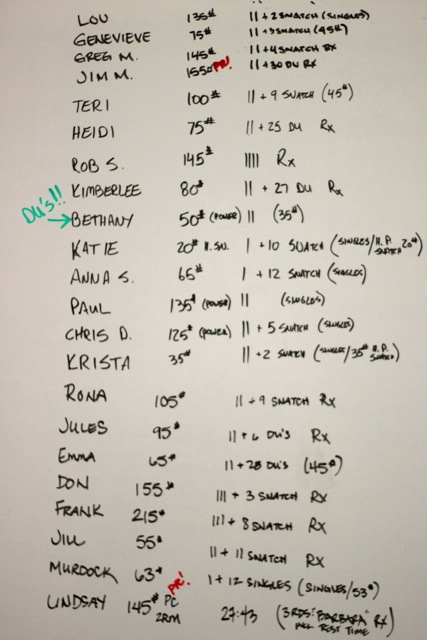 LOU 135# || + 2 SNATCH (SINGLES)
GENEVIEVE 75# || + 9 SNATCH (45#)
GREG M. 145# || + 4 SNATCH RX
JIM M. 155# PR! || + 30 DU RX
TERI 100# || + 9 SNATCH (45#)
HEIDI 75# || + 25 DU Rx
ROB S. 145# |||| Rx
KIMBERLEE 80# || + 27 DU Rx
DU's!!
→ BETHANY 50# (POWER) || (35#)
KATIE 20# H.SN. | + 10 SNATCH (SINGLES/H.P. SNATCH 20#)
ANNA S. 65# | + 12 SNATCH (SINGLES)
PAUL 135# (POWER) || (SINGLES)
CHRIS D. 125# (POWER) || + 5 SNATCH (SINGLES)
KRISTA 35# || + 2 SNATCH (SINGLES/35# H.P. SNATCH)
RONA 105# || + 9 SNATCH RX
JULES 95# || + 6 DU'S RX
EMMA 65# || + 28 DU'S (45#)
DON 155# ||| + 3 SNATCH RX
FRANK 215# ||| + 8 SNATCH RX
JILL 55# || + 11 SNATCH RX
MURDOCK 63# | + 12 SINGLES (SINGLES/53#)
PR!
LINDSAY 145# PC 2RM 27:43 (3 RDS "BARBARA" RX INCL REST TIME)